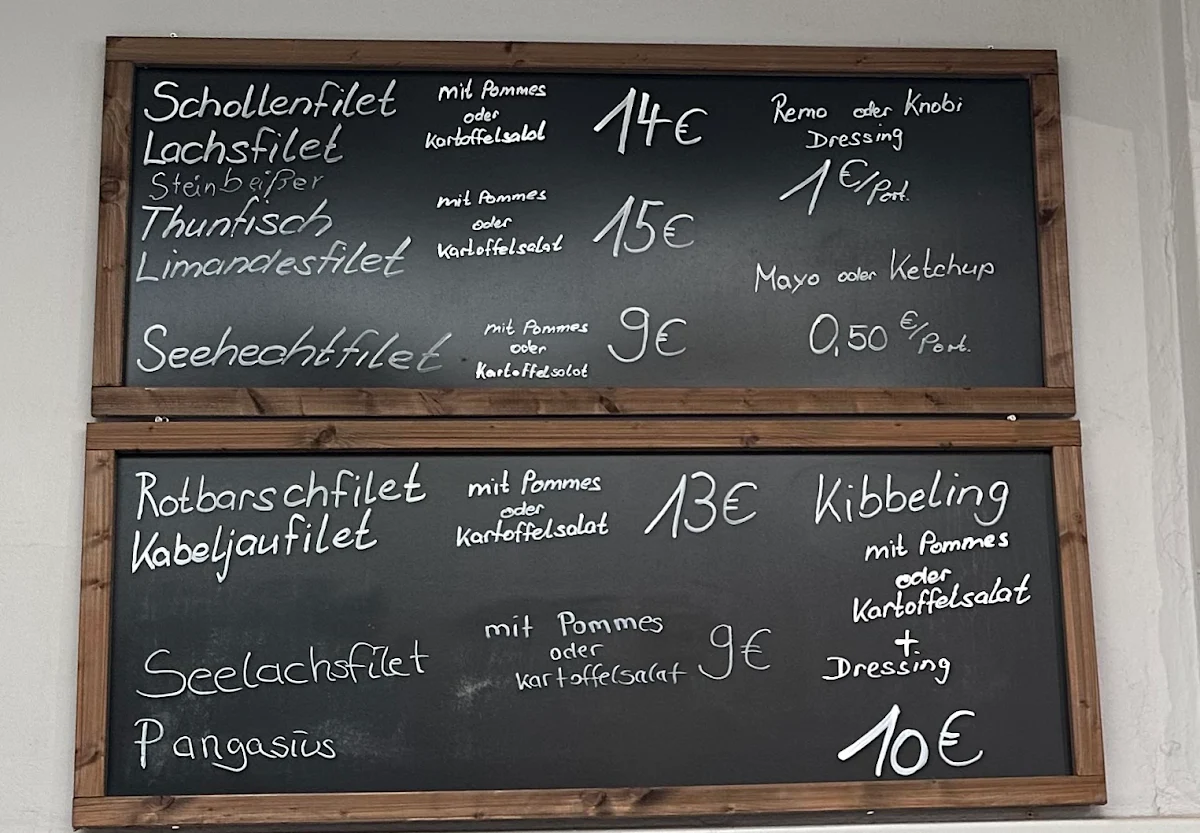 Schollenfilet
Lachsfilet
Steinbeißer
Thunfisch
Limandesfilet
Seehechtfilet
mit Pommes
oder
Kartoffelsalat
14€
mit Pommes
oder
Kartoffelsalat
15€
mit Pommes
oder
Kartoffelsalat
9€
Remo oder Knobi
Dressing
1€/Port.
Mayo oder Ketchup
0,50 €/Port.
Rotbarschfilet
Kabeljaufilet
mit Pommes
oder
Kartoffelsalat
13€
Seelachsfilet
Pangasius
mit Pommes
oder
Kartoffelsalat
9€
Kibbeling
mit Pommes
oder
Kartoffelsalat
+
Dressing
10€